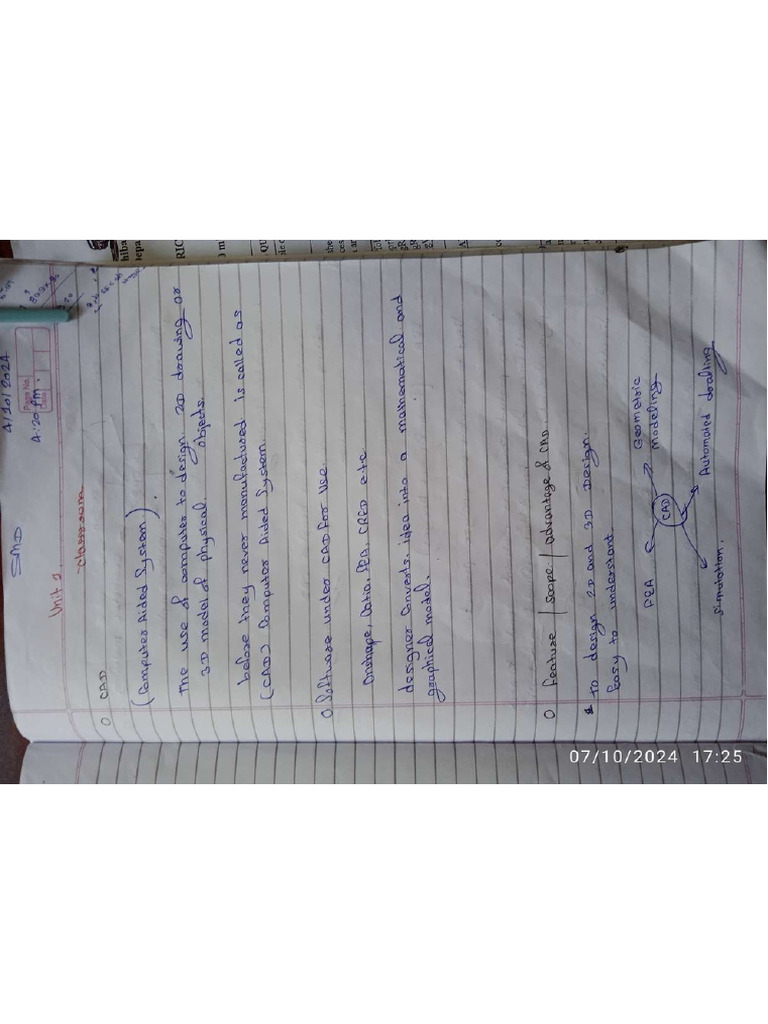 SMD
4/10/2024
Page No.
Date
4:20 pm.
Unit 1.
classroom
O CAD
(Computer Aided System).
The use of computer to design 2D drawing or
3D model of physical objects.
before they never manufactured is called as
(CAD) Computer Aided System.
O Software under CAD for Use.
Onshape, Catia, FEA, CREO etc
designer converts idea into a mathematical and
graphical model.
O feature / scope / advantage of CAD
To design 2D and 3D Design.
Easy to understant.
FEA
CAD
Geometric
Modeling
simulation.
Automated drafting
07/10/2024 17:25